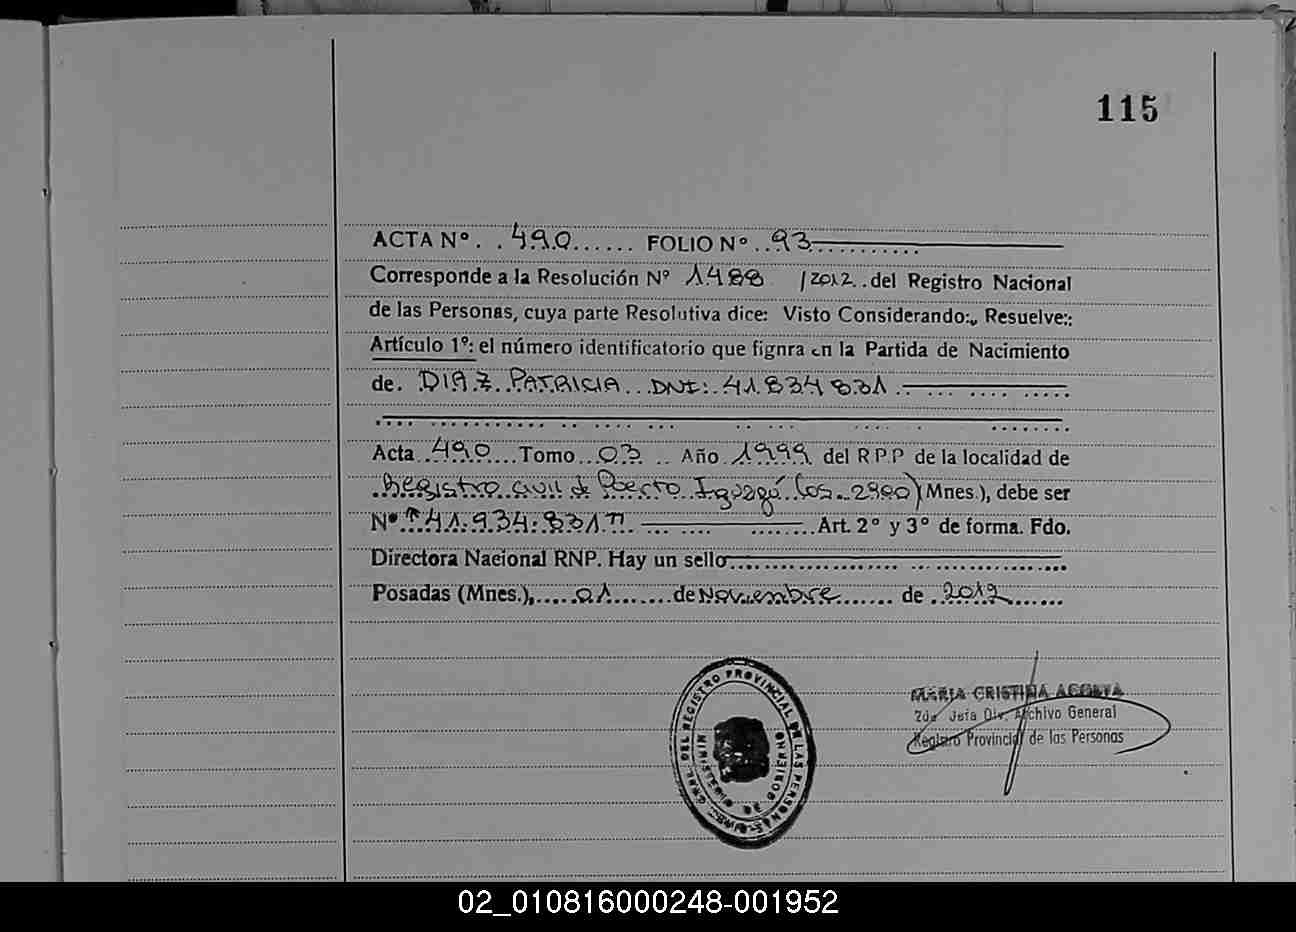 115
ACTA Nº. . 490 ...... FOLIO Nº ..93
Corresponde a la Resolución Nº 1488 /2012..del Registro Nacional
de las Personas, cuya parte Resolutiva dice: Visto Considerando:„ Resuelve::
Artículo 1º: el número identificatorio que fignra en la Partida de Nacimiento
de. DIAZ PATRICIA...DNI: 41.834.831
Acta..490...Tomo...03 .. Año .1999 del R P P de la localidad de
Registro civil de Puerto Iguazú (os. 2900) (Mnes.), debe ser
Nº "41.934.831" Art. 2º y 3º de forma. Fdo.
Directora Nacional RNP. Hay un sello
Posadas (Mnes.),.....01........de Noviembre....... de ..2012
GRAL. DEL REGISTRO PROVINCIAL DE LAS PERSONAS
MINISTERIO DE GOBIERNO
MARIA CRISTINA ACOSTA
2da Jefa Div. Archivo General
Registro Provincial de las Personas
02_010816000248-001952